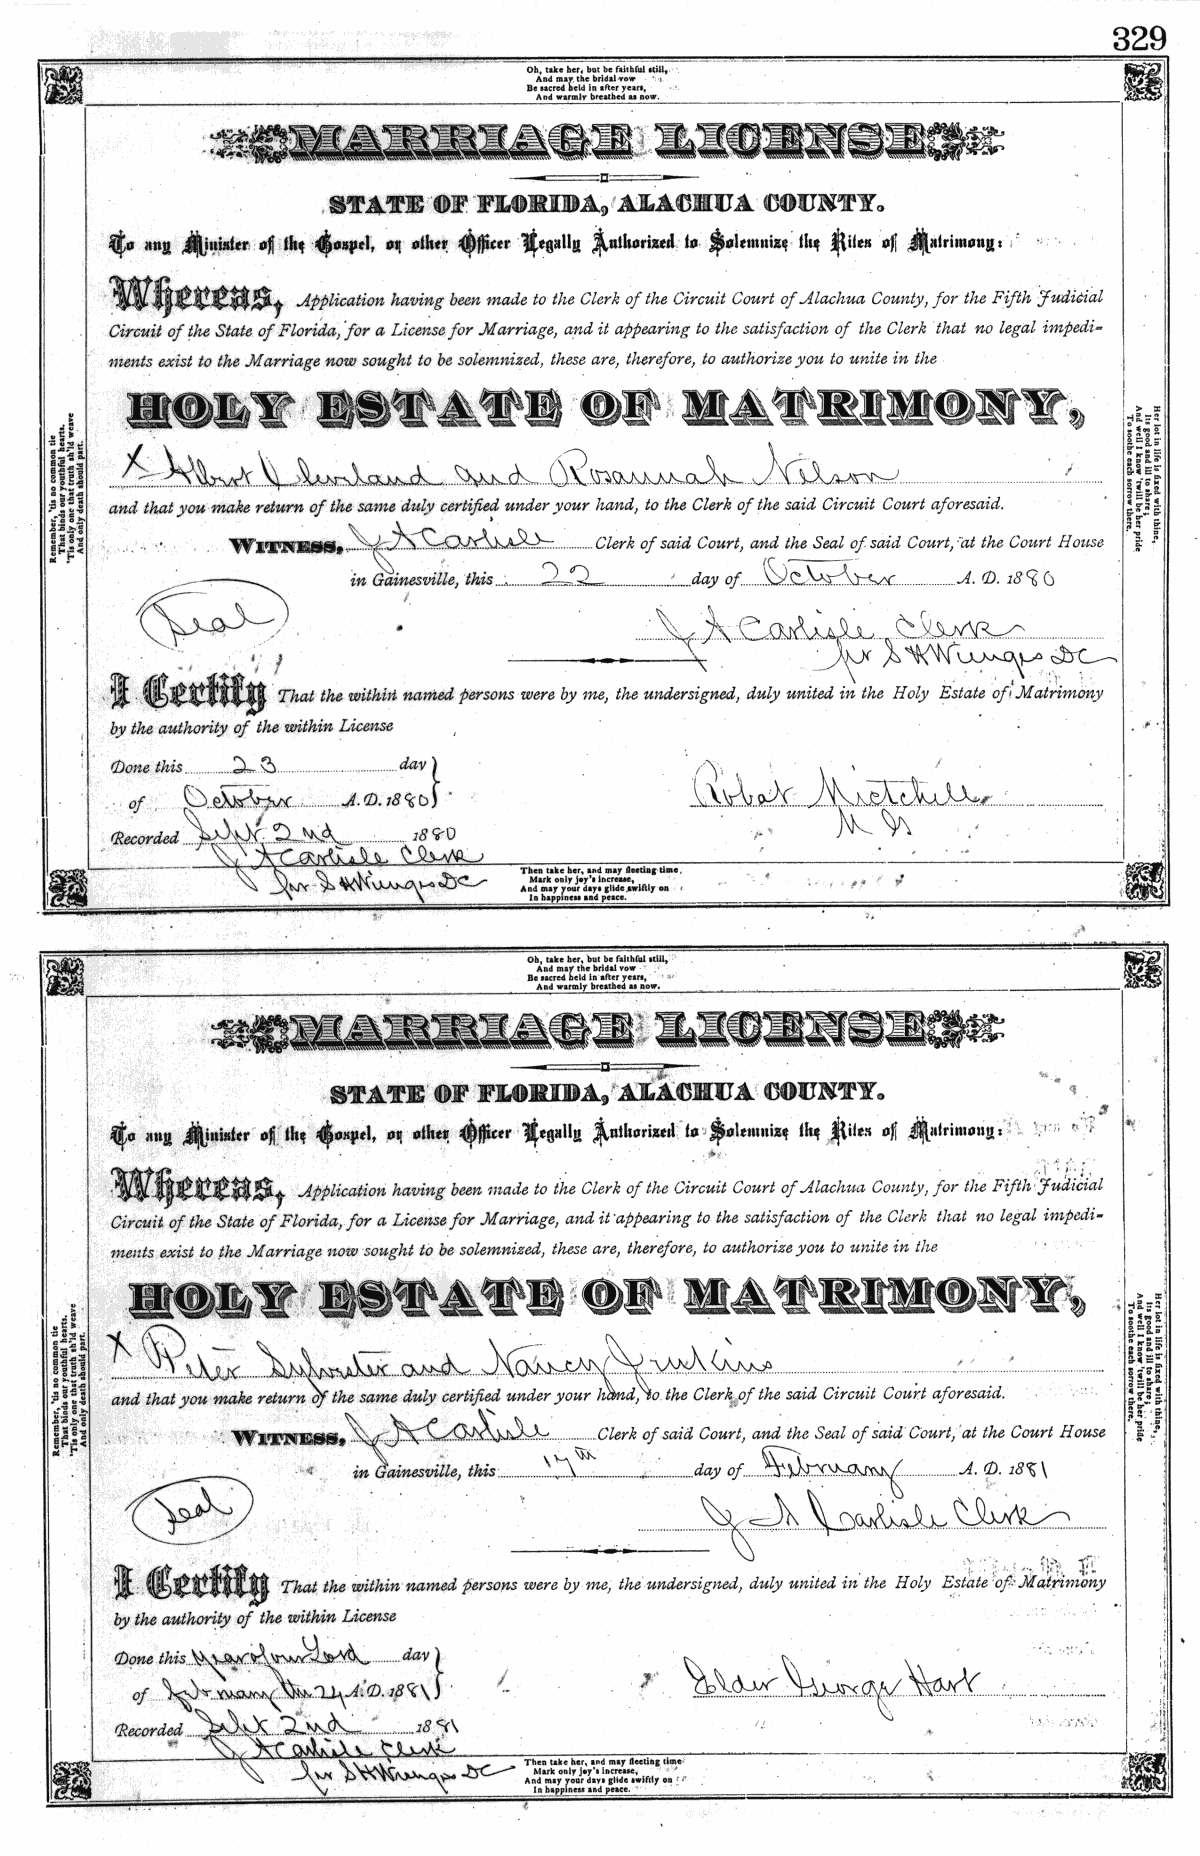 329
Oh, take her, but be faithful still,
And may the bridal vow
Be sacred held in after years,
And warmly breathed as now.
MARRIAGE LICENSE
STATE OF FLORIDA, ALACHUA COUNTY.
To any Minister of the Gospel, or other Officer Legally Authorized to Solemnize the Rites of Matrimony:
Whereas, Application having been made to the Clerk of the Circuit Court of Alachua County, for the Fifth Judicial
Circuit of the State of Florida, for a License for Marriage, and it appearing to the satisfaction of the Clerk that no legal impedi-
ments exist to the Marriage now sought to be solemnized, these are, therefore, to authorize you to unite in the
HOLY ESTATE OF MATRIMONY,
X Albert Cleveland and Rosannah Nelson
and that you make return of the same duly certified under your hand, to the Clerk of the said Circuit Court aforesaid.
WITNESS, J A Carlisle Clerk of said Court, and the Seal of said Court, at the Court House
in Gainesville, this 22 day of October A. D. 1880
Seal
J A Carlisle Clerk
per S H Wienges DC
I Certify That the within named persons were by me, the undersigned, duly united in the Holy Estate of Matrimony
by the authority of the within License
Done this 23 day
of October A. D. 1880
Robat Mictchell
M G
Recorded Sept 2nd 1880
J A Carlisle Clerk
per S H Wienges DC
Then take her, and may fleeting time
Mark only joy's increase,
And may your days glide swiftly on
In happiness and peace.
Remember, 'tis no common tie
That binds our youthful hearts,
'Tis only one that truth sh'ld weave
And only death should part.
Her lot in life is fixed with thine,
Its good and ill to share;
And well I know 'twill be her pride
To soothe each sorrow there.
Oh, take her, but be faithful still,
And may the bridal vow
Be sacred held in after years,
And warmly breathed as now.
MARRIAGE LICENSE
STATE OF FLORIDA, ALACHUA COUNTY.
To any Minister of the Gospel, or other Officer Legally Authorized to Solemnize the Rites of Matrimony:
Whereas, Application having been made to the Clerk of the Circuit Court of Alachua County, for the Fifth Judicial
Circuit of the State of Florida, for a License for Marriage, and it appearing to the satisfaction of the Clerk that no legal impedi-
ments exist to the Marriage now sought to be solemnized, these are, therefore, to authorize you to unite in the
HOLY ESTATE OF MATRIMONY,
X Peter Sylvester and Nancy Jenkins
and that you make return of the same duly certified under your hand, to the Clerk of the said Circuit Court aforesaid.
WITNESS, J A Carlisle Clerk of said Court, and the Seal of said Court, at the Court House
in Gainesville, this 17th day of February A. D. 1881
Seal
J A Carlisle Clerk
I Certify That the within named persons were by me, the undersigned, duly united in the Holy Estate of Matrimony
by the authority of the within License
Done this year of our Lord day
of february the 24 A. D. 1881
Elder George Hart
Recorded Sept 2nd 1881
J A Carlisle Clerk
per S H Wienges DC
Then take her, and may fleeting time
Mark only joy's increase,
And may your days glide swiftly on
In happiness and peace.
Remember, 'tis no common tie
That binds our youthful hearts,
'Tis only one that truth sh'ld weave
And only death should part.
Her lot in life is fixed with thine,
Its good and ill to share;
And well I know 'twill be her pride
To soothe each sorrow there.